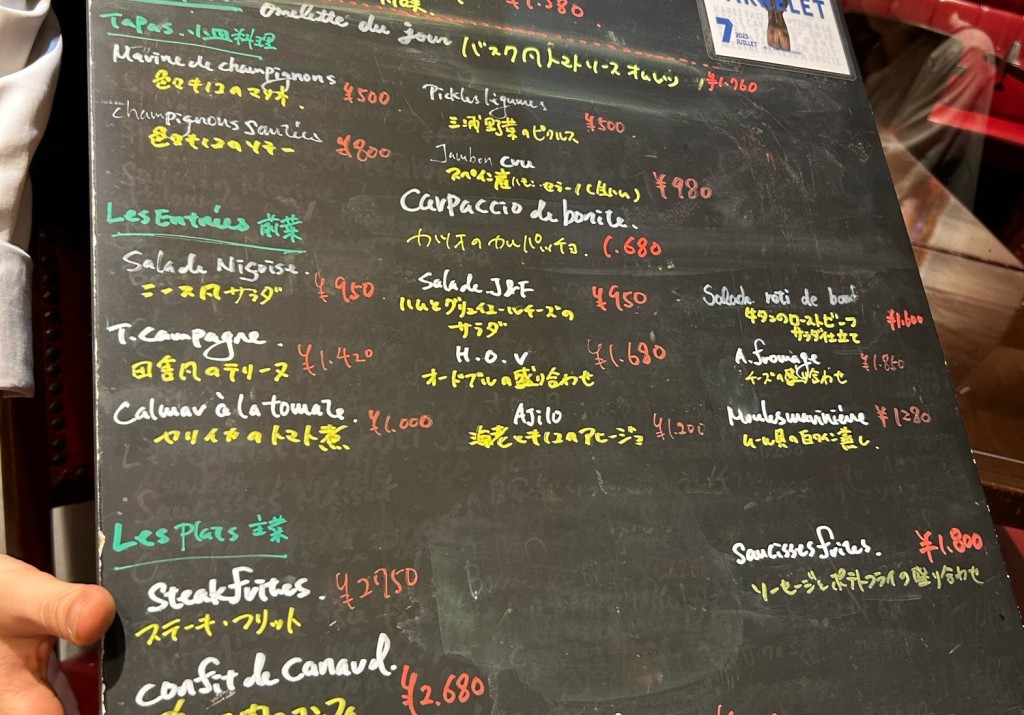 ¥1.580
omelette du jour バスク風トマトソースオムレツ ¥1.760
Tapas 小皿料理
Marine de champignons ¥500
色々キノコのマリネ.
champignons sautées ¥800
色々キノコのソテー
Pickles légumes
三浦野菜のピクルス ¥500
Jambon cru
スペイン産ハモンセラーノ(生ハム) ¥980
Les Entrées 前菜
Carpaccio de bonite.
カツオのカルパッチョ 1.680
Salade Niçoise. ¥950
ニース風サラダ
Salade J&F ¥950
ハムとグリュイエールチーズの
サラダ
Salade roti de boeuf
牛タンのローストビーフ ¥1.600
サラダ仕立て
T.campagne. ¥1.420
田舎風のテリーヌ
H.O.V ¥1.680
オードブルの盛り合わせ
A.fromage ¥1.850
チーズの盛り合わせ
Calmar à la tomate. ¥1.000
ヤリイカのトマト煮
Ajilo
海老とキノコのアヒージョ ¥1.200
Moules marinière ¥1280
ムール貝の白ワイン蒸し
Les Plats 主菜
Steak frites. ¥2750
ステーキ・フリット
Saucisses frites. ¥1.800
ソーセージとポテトフライの盛り合わせ
confit de canard. ¥2.680
7 2023
JUILLET